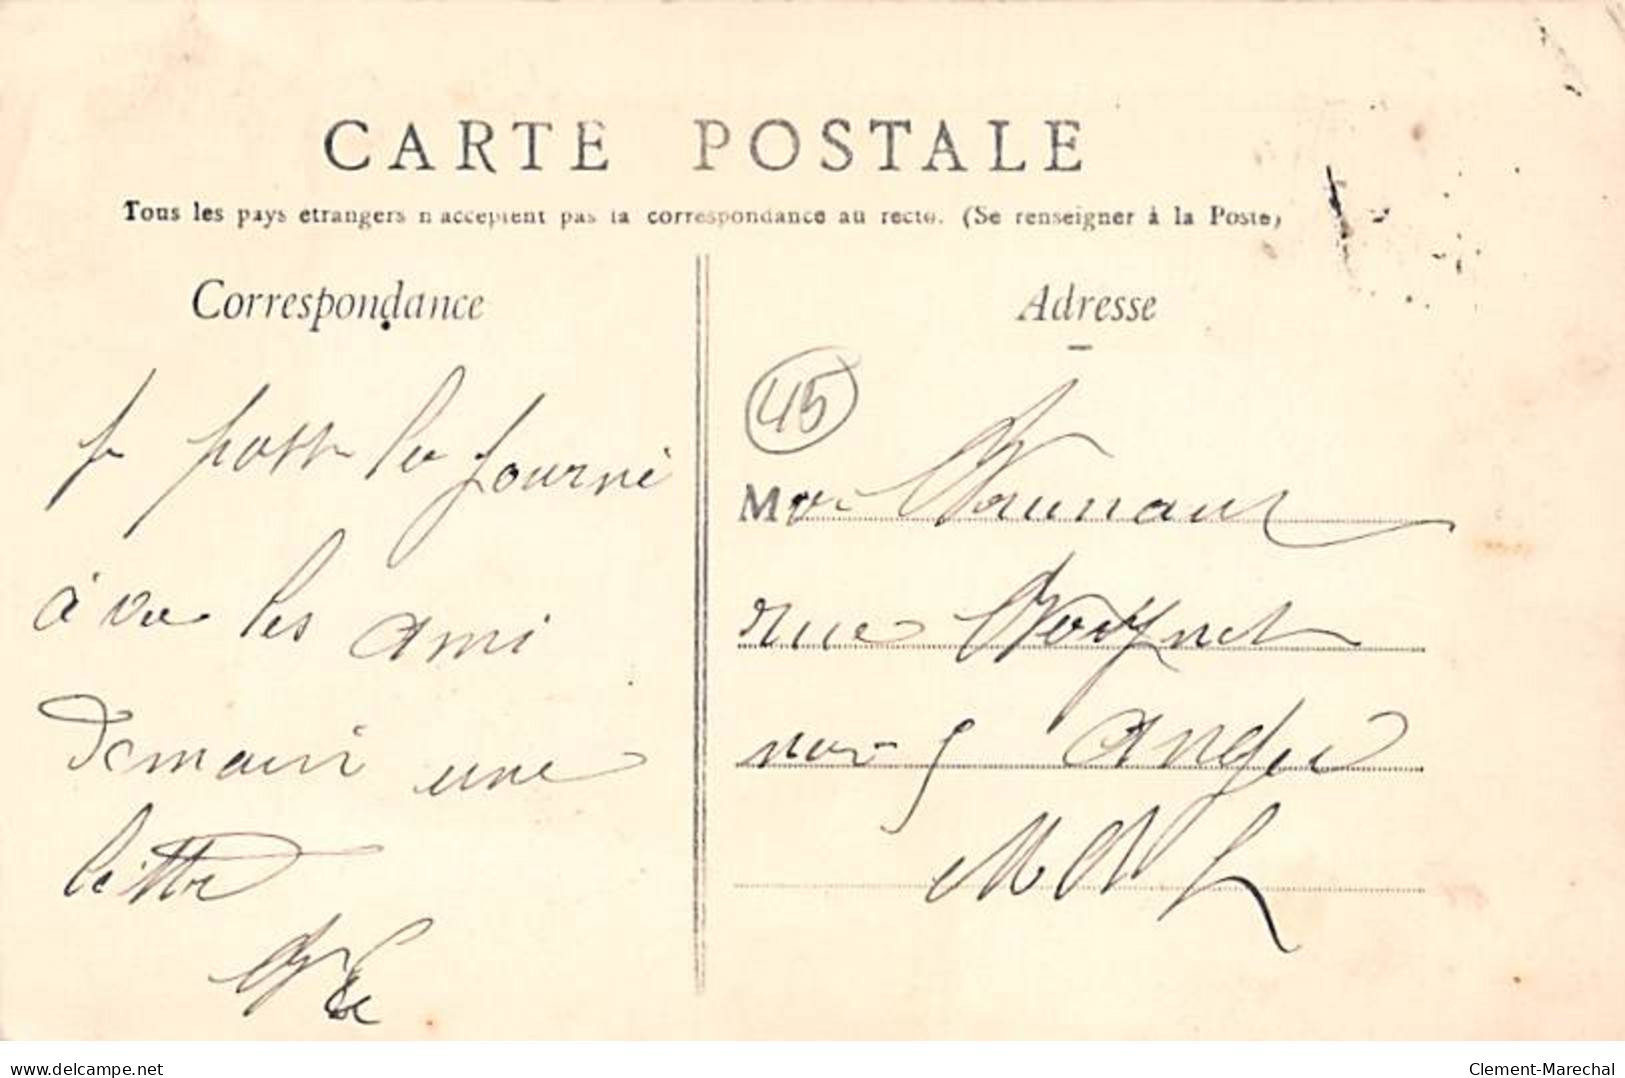 CARTE POSTALE
Tous les pays étrangers n'acceptent pas la correspondance au recto. (Se renseigner à la Poste)
Correspondance
je passe la journé
à vec les ami
Demain une
lettre
Adresse
45
M
rue Voisnet
nu- 5 Angers
M et L
delcampe.net
Clement-Marechal